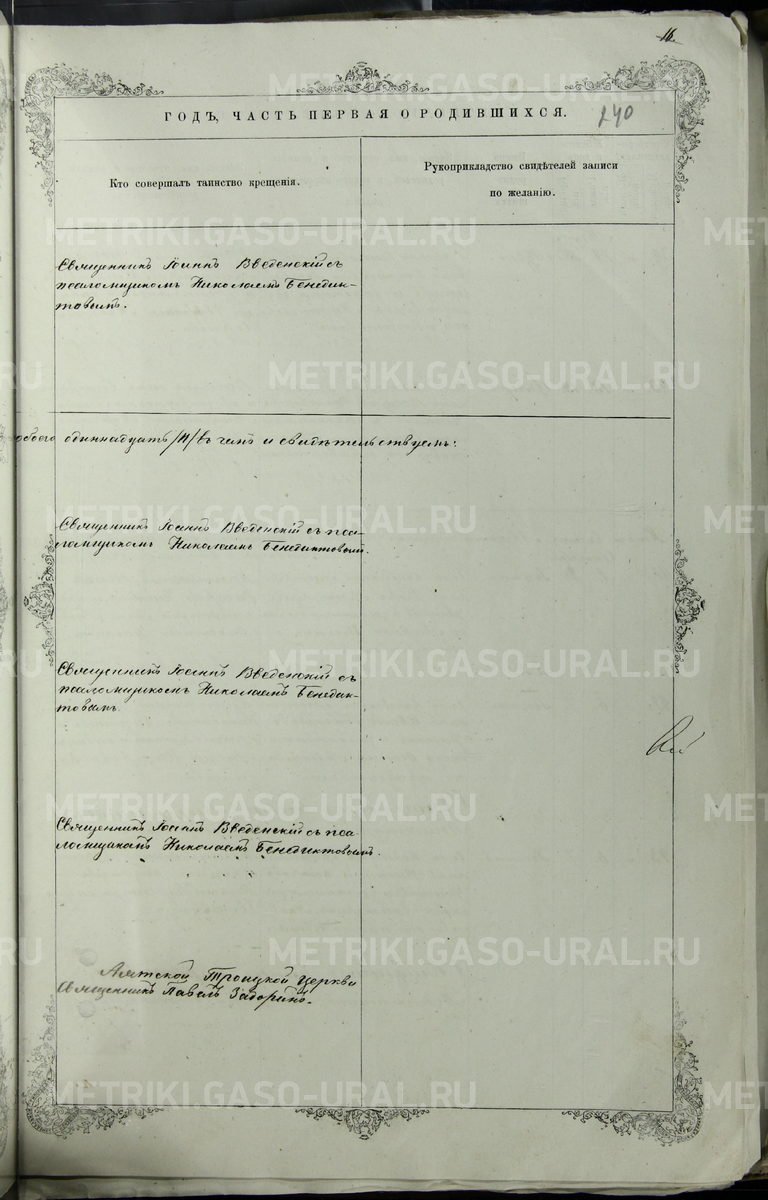 16.
ГОДЪ, ЧАСТЬ ПЕРВАЯ О РОДИВШИХСЯ.
240
Кто совершалъ таинство крещенія.
Рукоприкладство свидѣтелей записи
по желанію.
Священникъ Іоаннъ Введенскій съ
псаломщикомъ Николаемъ Бенедик-
товымъ.
обоего одиннадцать /11/ въ чемъ и свидѣтельствуемъ:
Священникъ Іоаннъ Введенскій съ пса-
ломщикомъ Николаемъ Бенедиктовым.
Священникъ Іоаннъ Введенскій съ
псаломщикомъ Николаемъ Бенедик-
товымъ.
Священникъ Іоаннъ Введенскій съ пса
ломщикомъ Николаемъ Бенедиктовымъ.
Аятской Троицкой церкви
Священникъ Павелъ Задоринъ.
METRIKI.GASO-URAL.RU